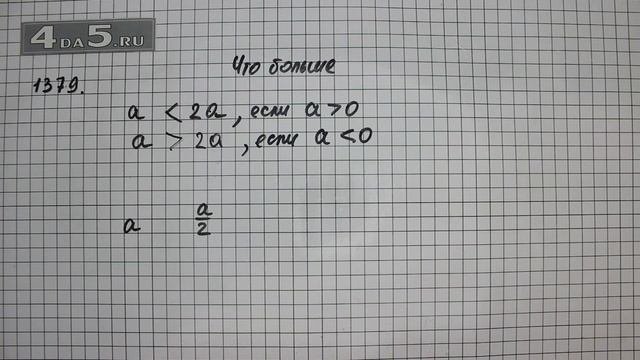 4DA5.RU
Что больше
1379.
a < 2a, если a > 0
a > 2a, если a < 0
a a/2